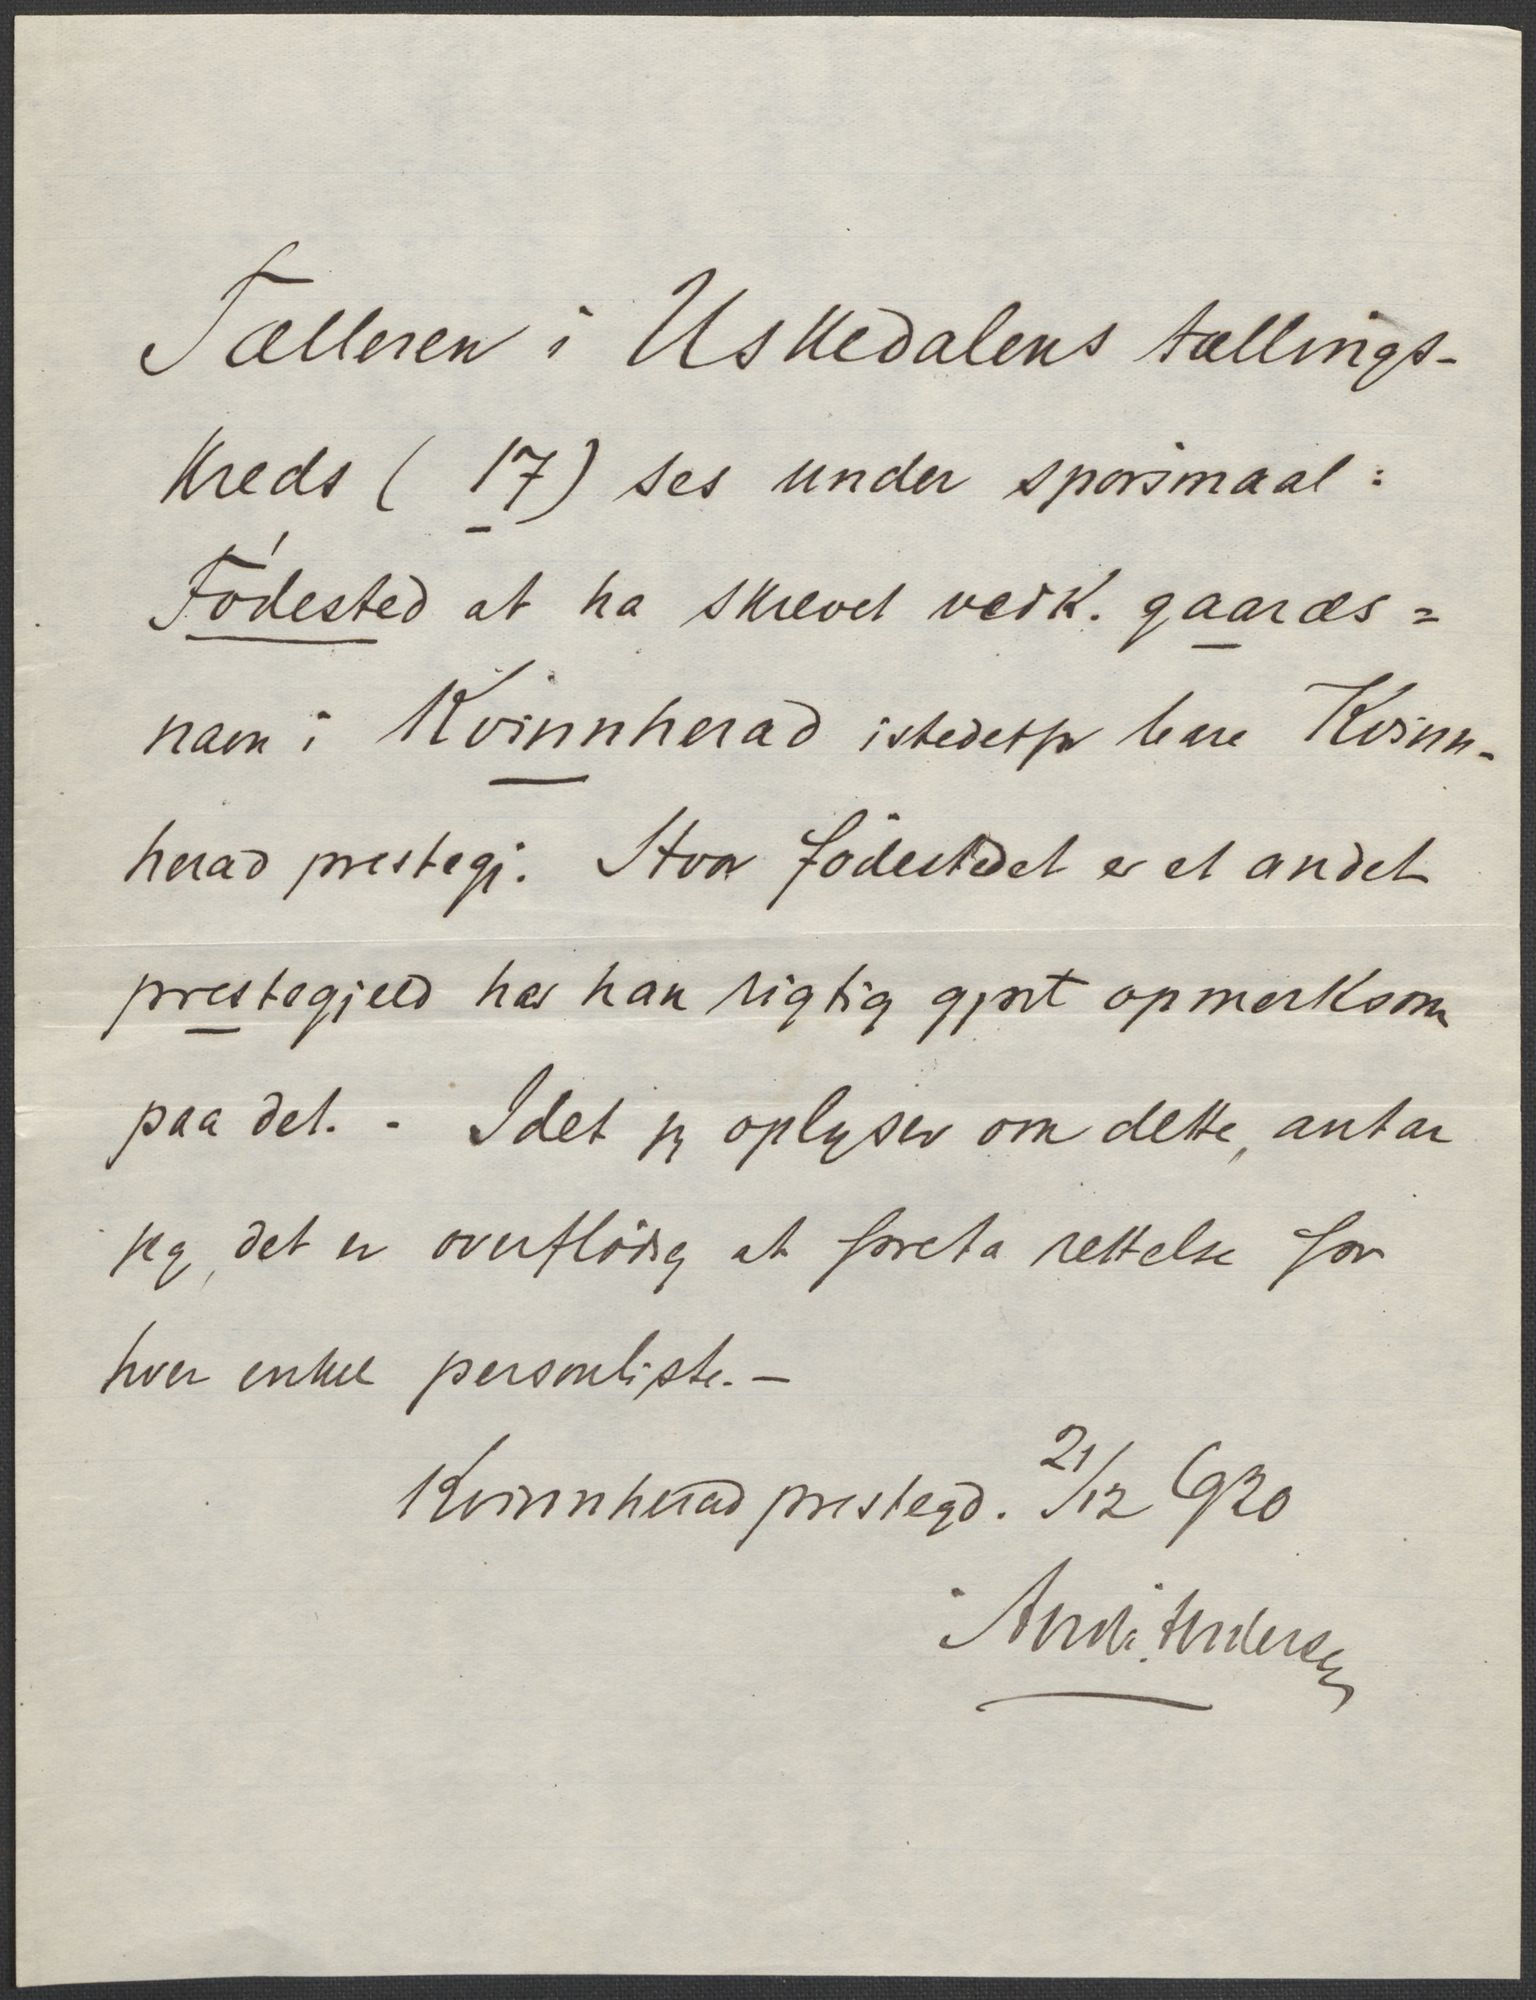 Tælleren i Uskedalens tællings-
kreds (17) ses under spørsmaal:
Fødested at ha skrevet vedk. gaards=
navn i Kvinnherad istedetfor bare Kvinn-
herad prestegj. Hvor fødestedet er et andet
prestegjeld har han rigtig gjort opmerksom
paa det. - Idet jeg oplyser om dette, antar
jeg, det er overflødig at foreta rettelse for
hver enkel personliste. -
Kvinnherad prestegd. 21/12 1920
Andersen